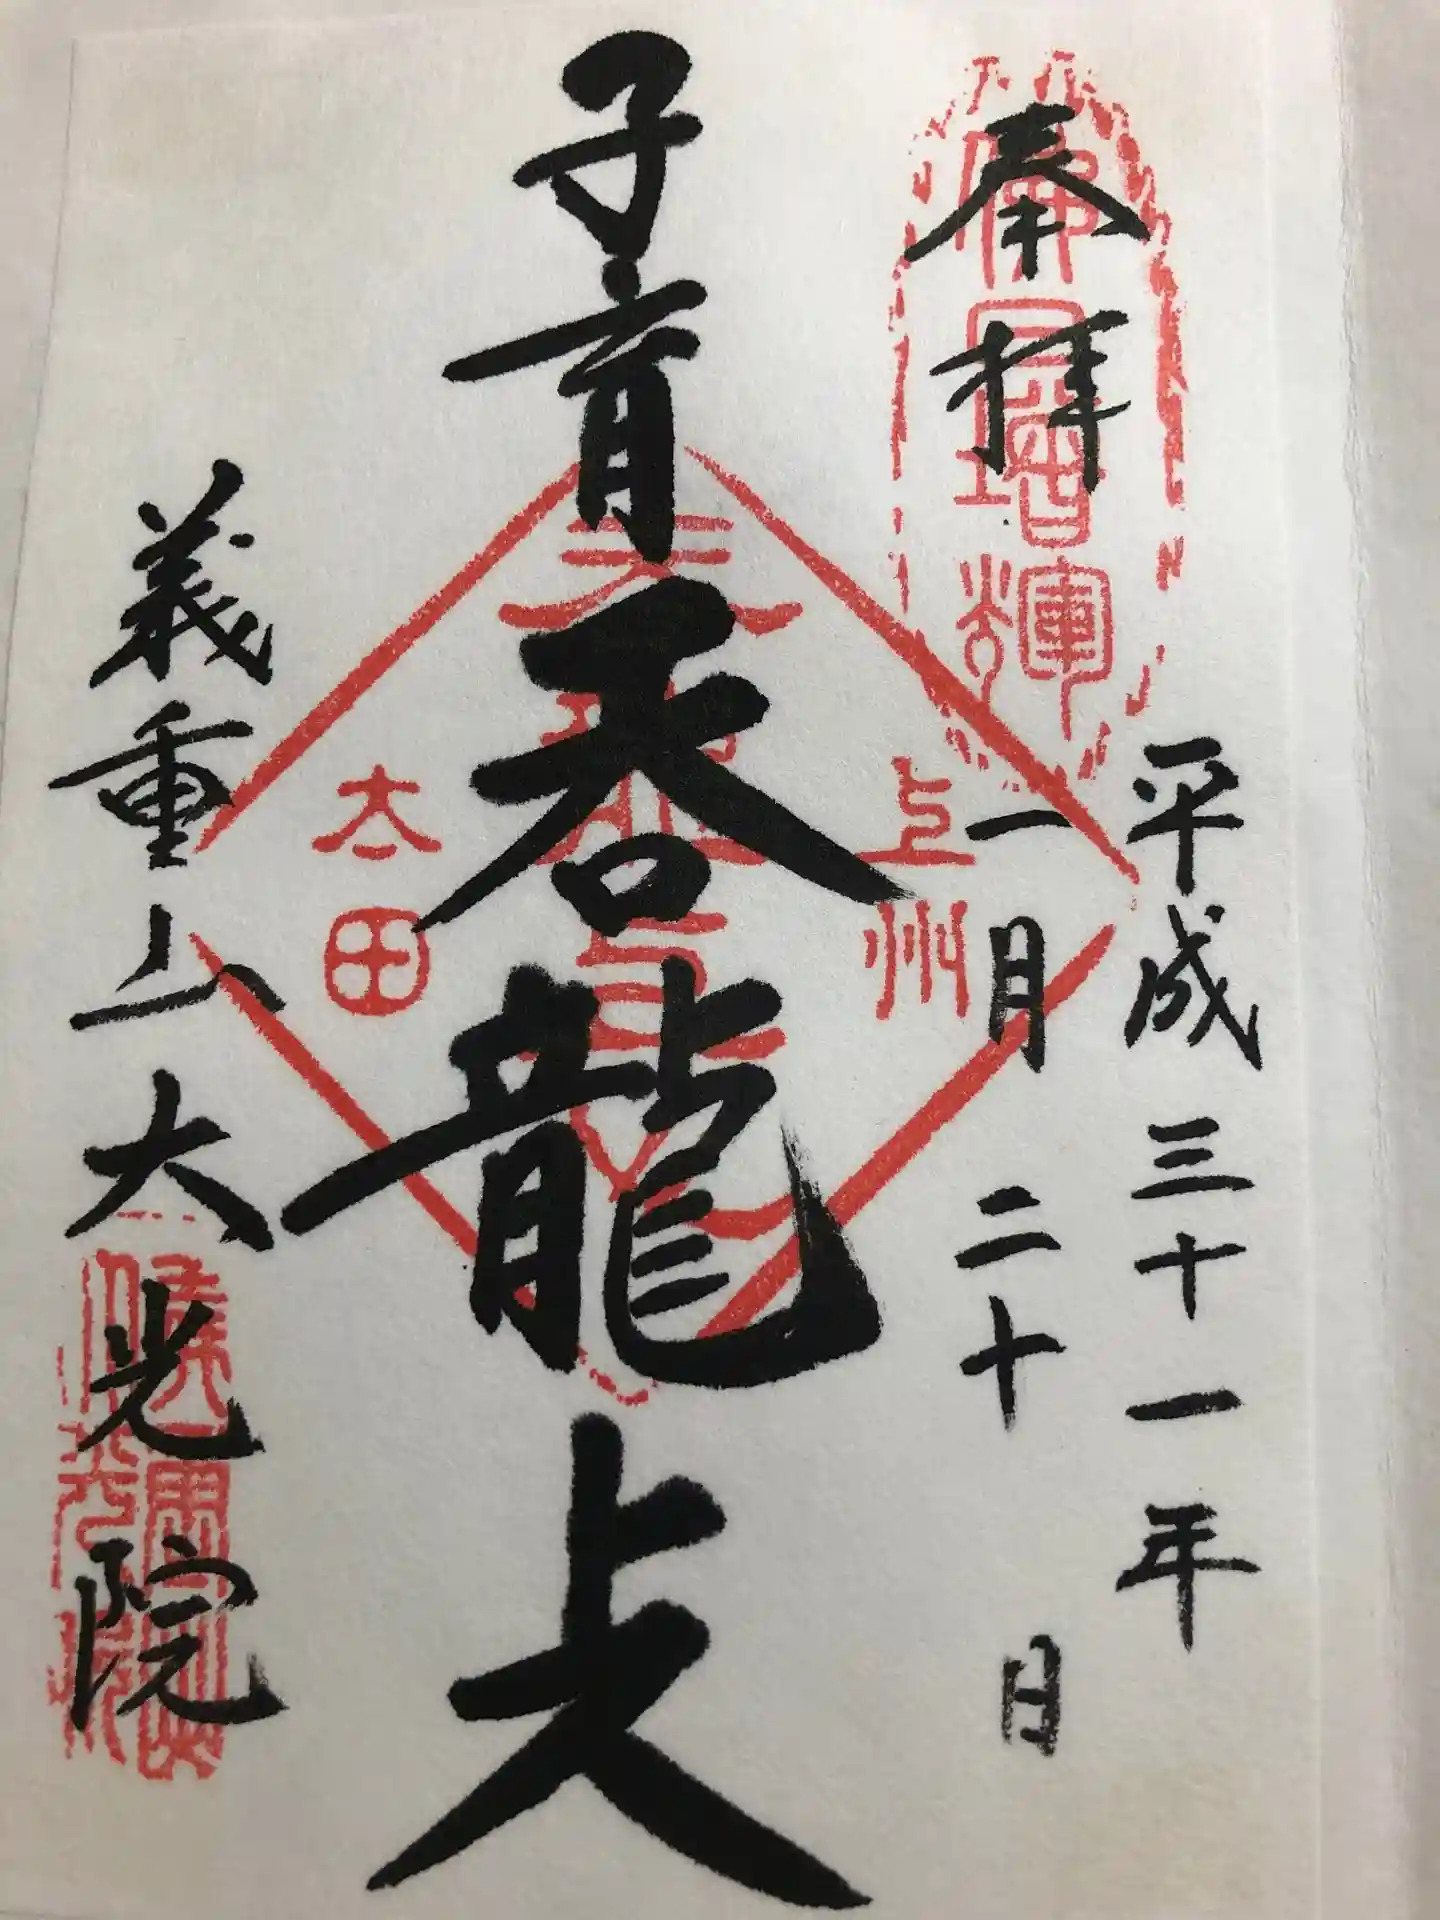 奉拝
平成三十一年
一月二十日
子育呑龍上人
義重山大光院
佛日増輝
上州
太田